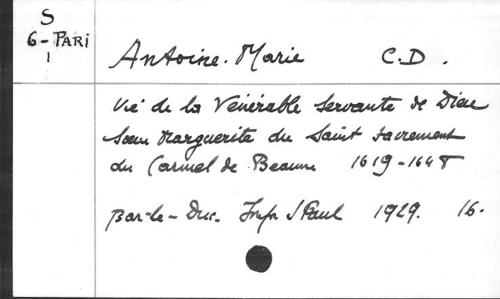 S
6-PARI
1
Antoine-Marie C.D.
Vie de la Vénérable Servante de Dieu
Sœur Marguerite du Saint Sacrement
du Carmel de Beaune 1619-1648
Bar-le-Duc. Imp. S Paul 1929. 16.